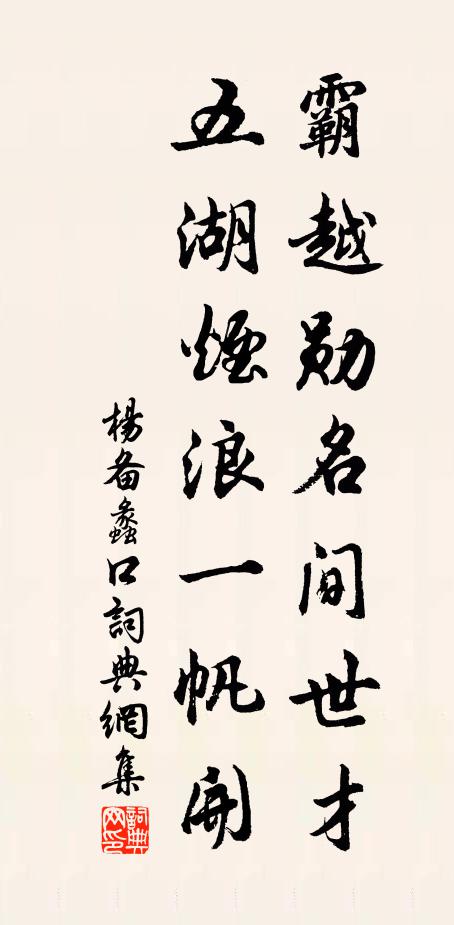 霸越勋名间世才
五湖烟浪一帆开
楊备蠡口詞典網集
詞典網印